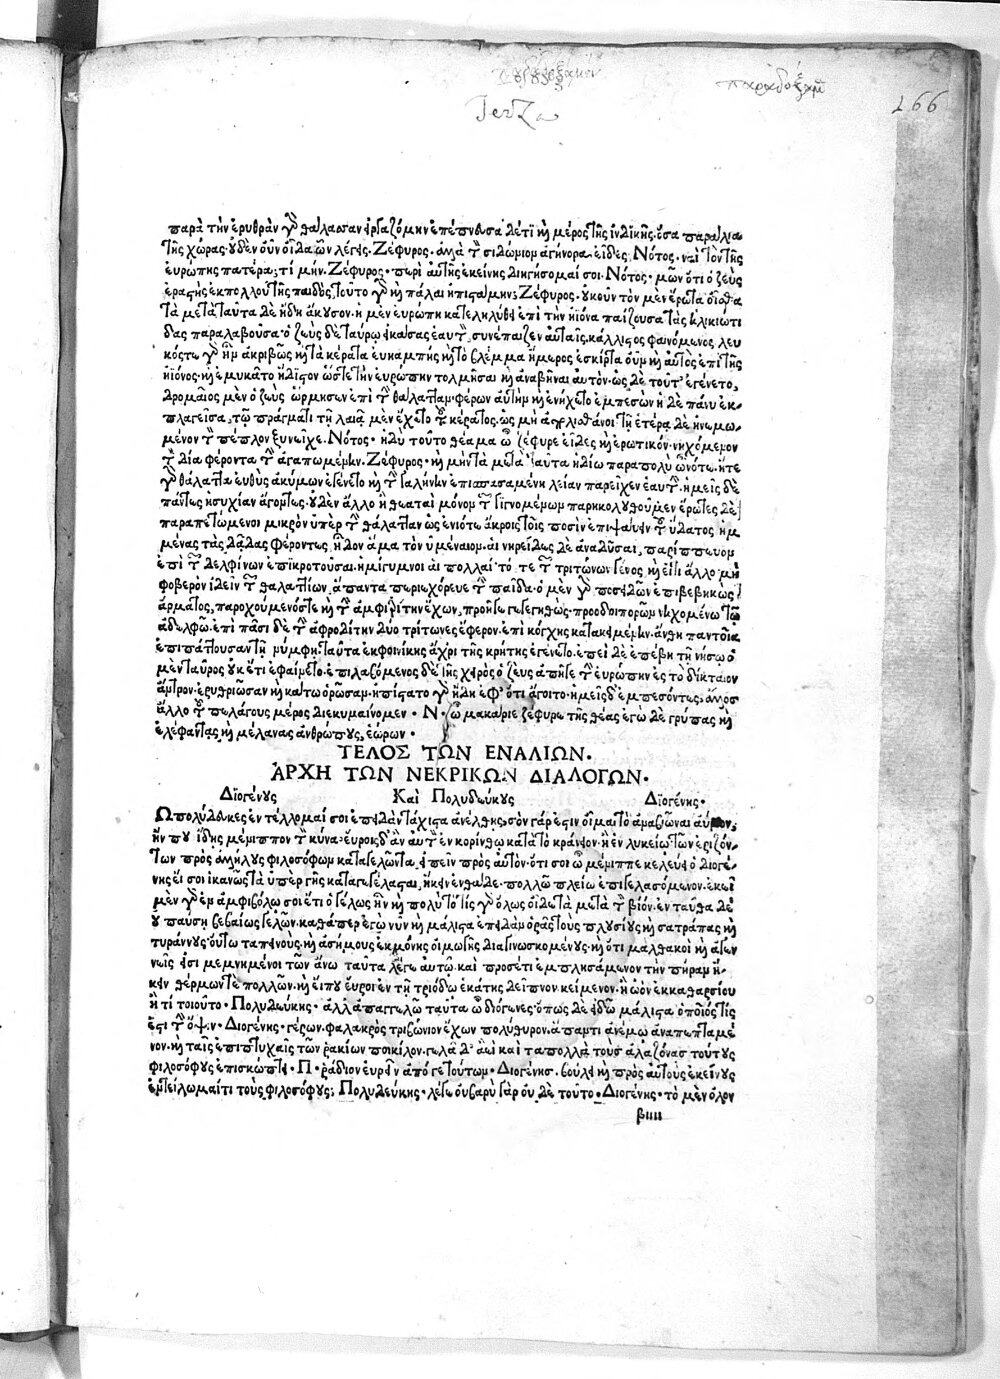 παραδοξαμ
166
παρὰ τὴν ἐρυθρὰν γὰρ θάλασσαν ἐργαζόμην ἐπέπνευσα δέ τι καὶ μέρος τῆς ἰνδικῆς ὅσα παράλια
τῆς χώρας· οὐδὲν οὖν οἶδα ὧν λέγεις· Ζέφυρος· ἀλλὰ τὸν σιδώνιον ἀγήνορα εἶδες, Νότος· ναὶ τὸν τῆς
εὐρώπης πατέρα; τί μήν· Ζέφυρος· περὶ αὐτῆς ἐκείνης διηγήσομαί σοι· Νότος· μῶν ὅτι ὁ ζεὺς
ἐραστὴς ἐκ πολλοῦ τῆς παιδὸς, τοῦτο γὰρ καὶ πάλαι ἠπιστάμην; Ζέφυρος· οὐκοῦν τὸν μὲν ἔρωτα οἶσθα
τὰ μετὰ ταῦτα δὲ ἤδη ἄκουσον· ἡ μὲν εὐρώπη κατεληλύθει ἐπὶ τὴν ἠιόνα παίζουσα τὰς ἡλικιώτι
δας παραλαβοῦσα· ὁ ζεὺς δὲ ταύρῳ εἰκάσας ἑαυτὸν συνέπαιζεν αὐταῖς κάλλιστος φαινόμενος λευ
κός τε γὰρ ἦν ἀκριβῶς καὶ τὰ κέρατα εὐκαμπὴς καὶ τὸ βλέμμα ἥμερος ἐσκίρτα οὖν καὶ αὐτὸς ἐπὶ τῆς
ἠιόνος· καὶ ἐμυκᾶτο ἥδιστον ὥστε τὴν εὐρώπην τολμῆσαι καὶ ἀναβῆναι αὐτόν· ὡς δὲ τοῦτ' ἐγένετο,
δρομαῖος μὲν ὁ ζεὺς ὥρμησεν ἐπὶ τὴν θάλατταν φέρων αὐτὴν καὶ ἐνήχετο ἐμπεσὼν ἡ δὲ πάνυ ἐκ-
πλαγεῖσα, τῷ πράγματι τῇ λαιᾷ μὲν εἴχετο τοῦ κέρατος, ὡς μὴ ἀπολισθάνοι τῇ ἑτέρᾳ δὲ ἠνεμω-
μένον τὸν πέπλον ξυνεῖχε· Νότος· ἡδὺ τοῦτο θέαμα ὦ ζέφυρε εἶδες καὶ ἐρωτικόν· νηχόμενον
τὸν δία φέροντα τὴν ἀγαπωμένην· Ζέφυρος· καὶ μὴν τὰ μετὰ ταῦτα ἡδίω παραπολὺ ὦ νότε· ἥτε
γὰρ θάλαττα εὐθὺς ἀκύμων ἐγένετο καὶ τὴν γαλήνην ἐπισπασαμένη λείαν παρεῖχεν ἑαυτήν· ἡμεῖς δὲ
πάντες ἡσυχίαν ἄγοντες· οὐδὲν ἄλλο ἢ θεαταὶ μόνον τῶν γιγνομένων παρηκολουθοῦμεν ἔρωτες δὲ
παραπετώμενοι μικρὸν ὑπὲρ τὴν θάλατταν ὡς ἐνίοτε ἄκροις τοῖς ποσὶν ἐπιψαύειν τοῦ ὕδατος ἡμ
μένας τὰς δᾷδας φέροντες ᾖδον ἅμα τὸν ὑμέναιον· αἱ νηρεΐδες δὲ ἀναδῦσαι, παρίππευον
ἐπὶ τῶν δελφίνων ἐπικροτοῦσαι ἡμίγυμνοι αἱ πολλαί· τό τε τῶν τριτώνων γένος καὶ εἴ τι ἄλλο μὴ
φοβερὸν ἰδεῖν τῶν θαλαττίων, ἅπαντα περιεχόρευε τὴν παῖδα· ὁ μὲν γὰρ ποσειδῶν ἐπιβεβηκὼς
ἅρματος, παροχούμενός τε καὶ τὴν ἀμφιτρίτην ἔχων, προῄει γεγηθὼς· προοδοιπορῶν νηχομένῳ τῷ
ἀδελφῷ· ἐπὶ πᾶσι δὲ τὴν ἀφροδίτην δύο τρίτωνες ἔφερον· ἐπὶ κόγχης κατακειμένην· ἄνθη παντοῖα
ἐπιπάττουσαν τῇ νύμφῃ· ταῦτα ἐκ φοινίκης ἄχρι τῆς κρήτης ἐγένετο· ἐπεὶ δὲ ἐπέβη τῇ νήσῳ ὁ
μὲν ταῦρος οὐκ ἔτι ἐφαίνετο· ἐπιλαβόμενος δὲ τῆς χειρὸς ὁ ζεὺς ἀπῆγε τὴν εὐρώπην ἐς τὸ δικταῖον
ἄντρον· ἐρυθριῶσαν καὶ κάτω ὁρῶσαν· ἠπίστατο γὰρ ἤδη ἐφ' ὅτι ἄγοιτο· ἡμεῖς δ' ἐμπεσόντες· ἄλλος
ἄλλο τοῦ πελάγους μέρος διεκυμαίνομεν· Ν· ὦ μακάριε ζέφυρε τῆς θέας ἐγὼ δὲ γρῦπας καὶ
ἐλέφαντας, καὶ μέλανας ἀνθρώπους, ἑώρων·
ΤΕΛΟΣ ΤΩΝ ΕΝΑΛΙΩΝ·
ἈΡΧΗ ΤΩΝ ΝΕΚΡΙΚΩΝ ΔΙΑΛΟΓΩΝ·
Διογένους Καὶ Πολυδεύκους Διογένης·
Ὦ πολύδευκες ἐντέλλομαί σοι ἐπειδὰν τάχιστα ἀνέλθῃς· σὸν γάρ ἐστιν οἶμαι τὸ ἀναβιῶναι αὔριον;
ἤν που ἴδῃς μένιππον τὸν κύνα· εὕροις δ' ἂν αὐτὸν ἐν κορίνθῳ κατὰ τὸ κράνειον· ἢ ἐν λυκείῳ· τῶν ἐριζόν-
των πρὸς ἀλλήλους φιλοσόφων καταγελῶντα, εἰπεῖν πρὸς αὐτόν· ὅτι σοι ὦ μένιππε κελεύει ὁ διογέ-
νης εἴ σοι ἱκανῶς τὰ ὑπὲρ γῆς καταγεγέλασται, ἥκειν ἐνθάδε· πολλῷ πλείω ἐπιγελασόμενον· ἐκεῖ
μὲν γὰρ ἐν ἀμφιβόλῳ σοι ἔτι ὁ γέλως ἦν καὶ πολὺ τὸ τίς γὰρ ὅλως οἶδε τὰ μετὰ τὸν βίον· ἐνταῦθα δὲ
οὐ παύσῃ βεβαίως γελῶν· καθάπερ ἐγὼ νῦν καὶ μάλιστα ἐπειδὰν ὁρᾷς τοὺς πλουσίους καὶ σατράπας καὶ
τυράννους οὕτω ταπεινοὺς· καὶ ἀσήμους ἐκ μόνης οἰμωγῆς διαγινωσκομένους· καὶ ὅτι μαλθακοὶ καὶ ἀγεν
νεῖς εἰσι μεμνημένοι τῶν ἄνω ταῦτα λέγε αὐτῷ· καὶ προσέτι ἐμπλησάμενον τὴν πήραν ἥ-
κειν θέρμων τε πολλῶν· καὶ εἴ που εὕροι ἐν τῇ τριόδῳ ἑκάτης δεῖπνον κείμενον· ἢ ὠὸν ἐκ καθαρσίου
ἤ τι τοιοῦτο· Πολυδεύκης· ἀλλ' ἀπαγγελῶ ταῦτα ὦ διόγενες· ὅπως δὲ εἰδῶ μάλιστα ὁποῖός τίς
ἐστι τὴν ὄψιν· Διογένης· γέρων, φαλακρὸς τριβώνιον ἔχων πολύθυρον· ἅπαντι ἀνέμῳ ἀναπεπταμέ
νον· καὶ ταῖς ἐπιπτυχαῖς τῶν ῥακίων ποικίλον· γελᾷ δ' ἀεὶ καὶ τὰ πολλὰ τοὺς ἀλαζόνας τούτους
φιλοσόφους ἐπισκώπτει· Π· ῥᾴδιον εὑρεῖν ἀπό γε τούτων· Διογένης· βούλει καὶ πρὸς αὐτοὺς ἐκείνους
ἐντείλωμαί τι τοὺς φιλοσόφους; Πολυδεύκης· λέγε οὐ βαρὺ γὰρ οὐδὲ τοῦτο· Διογένης· τὸ μὲν ὅλον
βιιιι